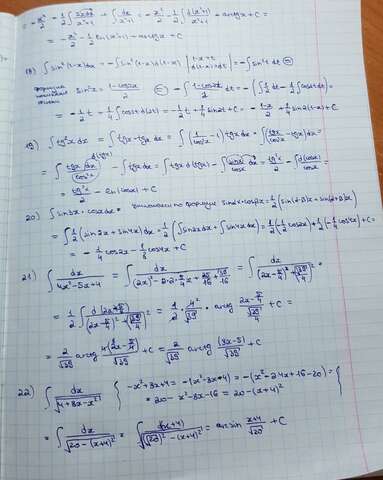 = -x²/2 - 1/2 ∫ 2xdx/(x²+1) + ∫ dx/(x²+1) = -x²/2 - 1/2 ∫ d(x²+1)/(x²+1) + arctgx + C =
= -x²/2 - 1/2 ln(x²+1) + arctgx + C
18) ∫ sin²(1-x)dx = -∫ sin²(1-x)d(1-x) | 1-x=t d(1-x)=dt | = -∫ sin²t dt ⊜
формула понижения sin²x = (1-cos2x)/2 ⊜ -∫ (1-cos2t)/2 dt = -(∫ 1/2 dt - 1/2 ∫ cos2t dt) =
= -1/2 t + 1/4 ∫ cos2t d(2t) = -1/2 t + 1/4 sin2t + C = -(1-x)/2 + 1/4 sin2(1-x) + C
19) ∫ tg³x dx = ∫ tg²x·tgx dx = ∫ (1/cos²x - 1) tgx dx = ∫ (tgx/cos²x - tgx) dx =
= ∫ tgx dx/cos²x - ∫ tgx dx = ∫ tgx d(tgx) - ∫ sinx dx/cosx = tg²x/2 - ∫ d(cosx)/cosx =
= tg²x/2 - ln(cosx) + C
20) ∫ sin3x·cosx dx = по формуле sinα·cosβ = 1/2 (sin(α-β)x + sin(α+β)x)
= ∫ 1/2 (sin2x + sin4x) dx = 1/2 (∫ sin2x dx + ∫ sin4x dx) = 1/2 (-1/2 cos2x) + 1/2 (-1/4 cos4x) + C
= -1/4 cos2x - 1/8 cos4x + C
21) ∫ dx/(4x²-5x+4) = ∫ dx/((2x)²-2·2·5/4 x + 25/16 + 39/16) = ∫ dx/((2x-5/4)²+(√39/4)²) =
= 1/2 ∫ d(2x-5/4)/((2x-5/4)²+(√39/4)²) = 1/2 · 4/√39 · arctg (2x-5/4)/(√39/4) + C =
= 2/√39 arctg 4(2x-5/4)/√39 + C = 2/√39 arctg (8x-5)/√39 + C
22) ∫ dx/√(4+8x-x²) { -x²+8x+4 = -(x²-8x-4) = -(x²-2·4x+16-20) = {
= 20-x²-8x-16 = 20-(x+4)²
= ∫ dx/√(20-(x+4)²) = ∫ d(x+4)/√((√20)²-(x+4)²) = arcsin (x+4)/√20 + C